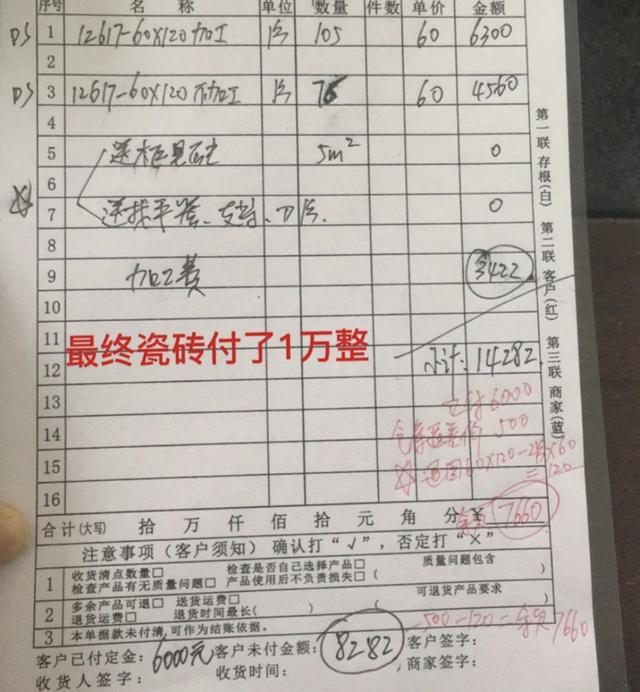 序号 名称 单位 数量 件数 单价 金额
DS 1 12617-60×120加工 片 105 60 6300
2
DS 3 12617-60×120不加工 片 76 60 4560
4
5 送柜见砖 5m² 0
6
7 送找平器、支撑、刀片. 0
8
9 加工费 3422
10
11
最终瓷砖付了1万整
12 小计: 14282
13 已付6000
14 500
15 退回60×120-2片×60
=120
16
合计(大写) 拾 万 仟 佰 拾 元 角 分 ¥ 7660
注意事项(客户须知) 确认打“√”,否定打“×”
1 收货清点数量□ 检查是否自己选择产品□ 质量问题包含
检查产品有无质量问题□ 产品使用后不负责损失□ ( )
2 多余产品可退□ 送货运费□ 可退货产品要求
退货运费□ 退货时间最长( ) ( )
3 本单据款未付清,可作为结账依据。
-500-120=余欠7660
客户已付定金: 6000元 客户未付金额: 8282 客户签字:
收货人签字: 收货时间: 商家签字:
第一联 存根(白) 第二联 客户(红) 第三联 商家(蓝)